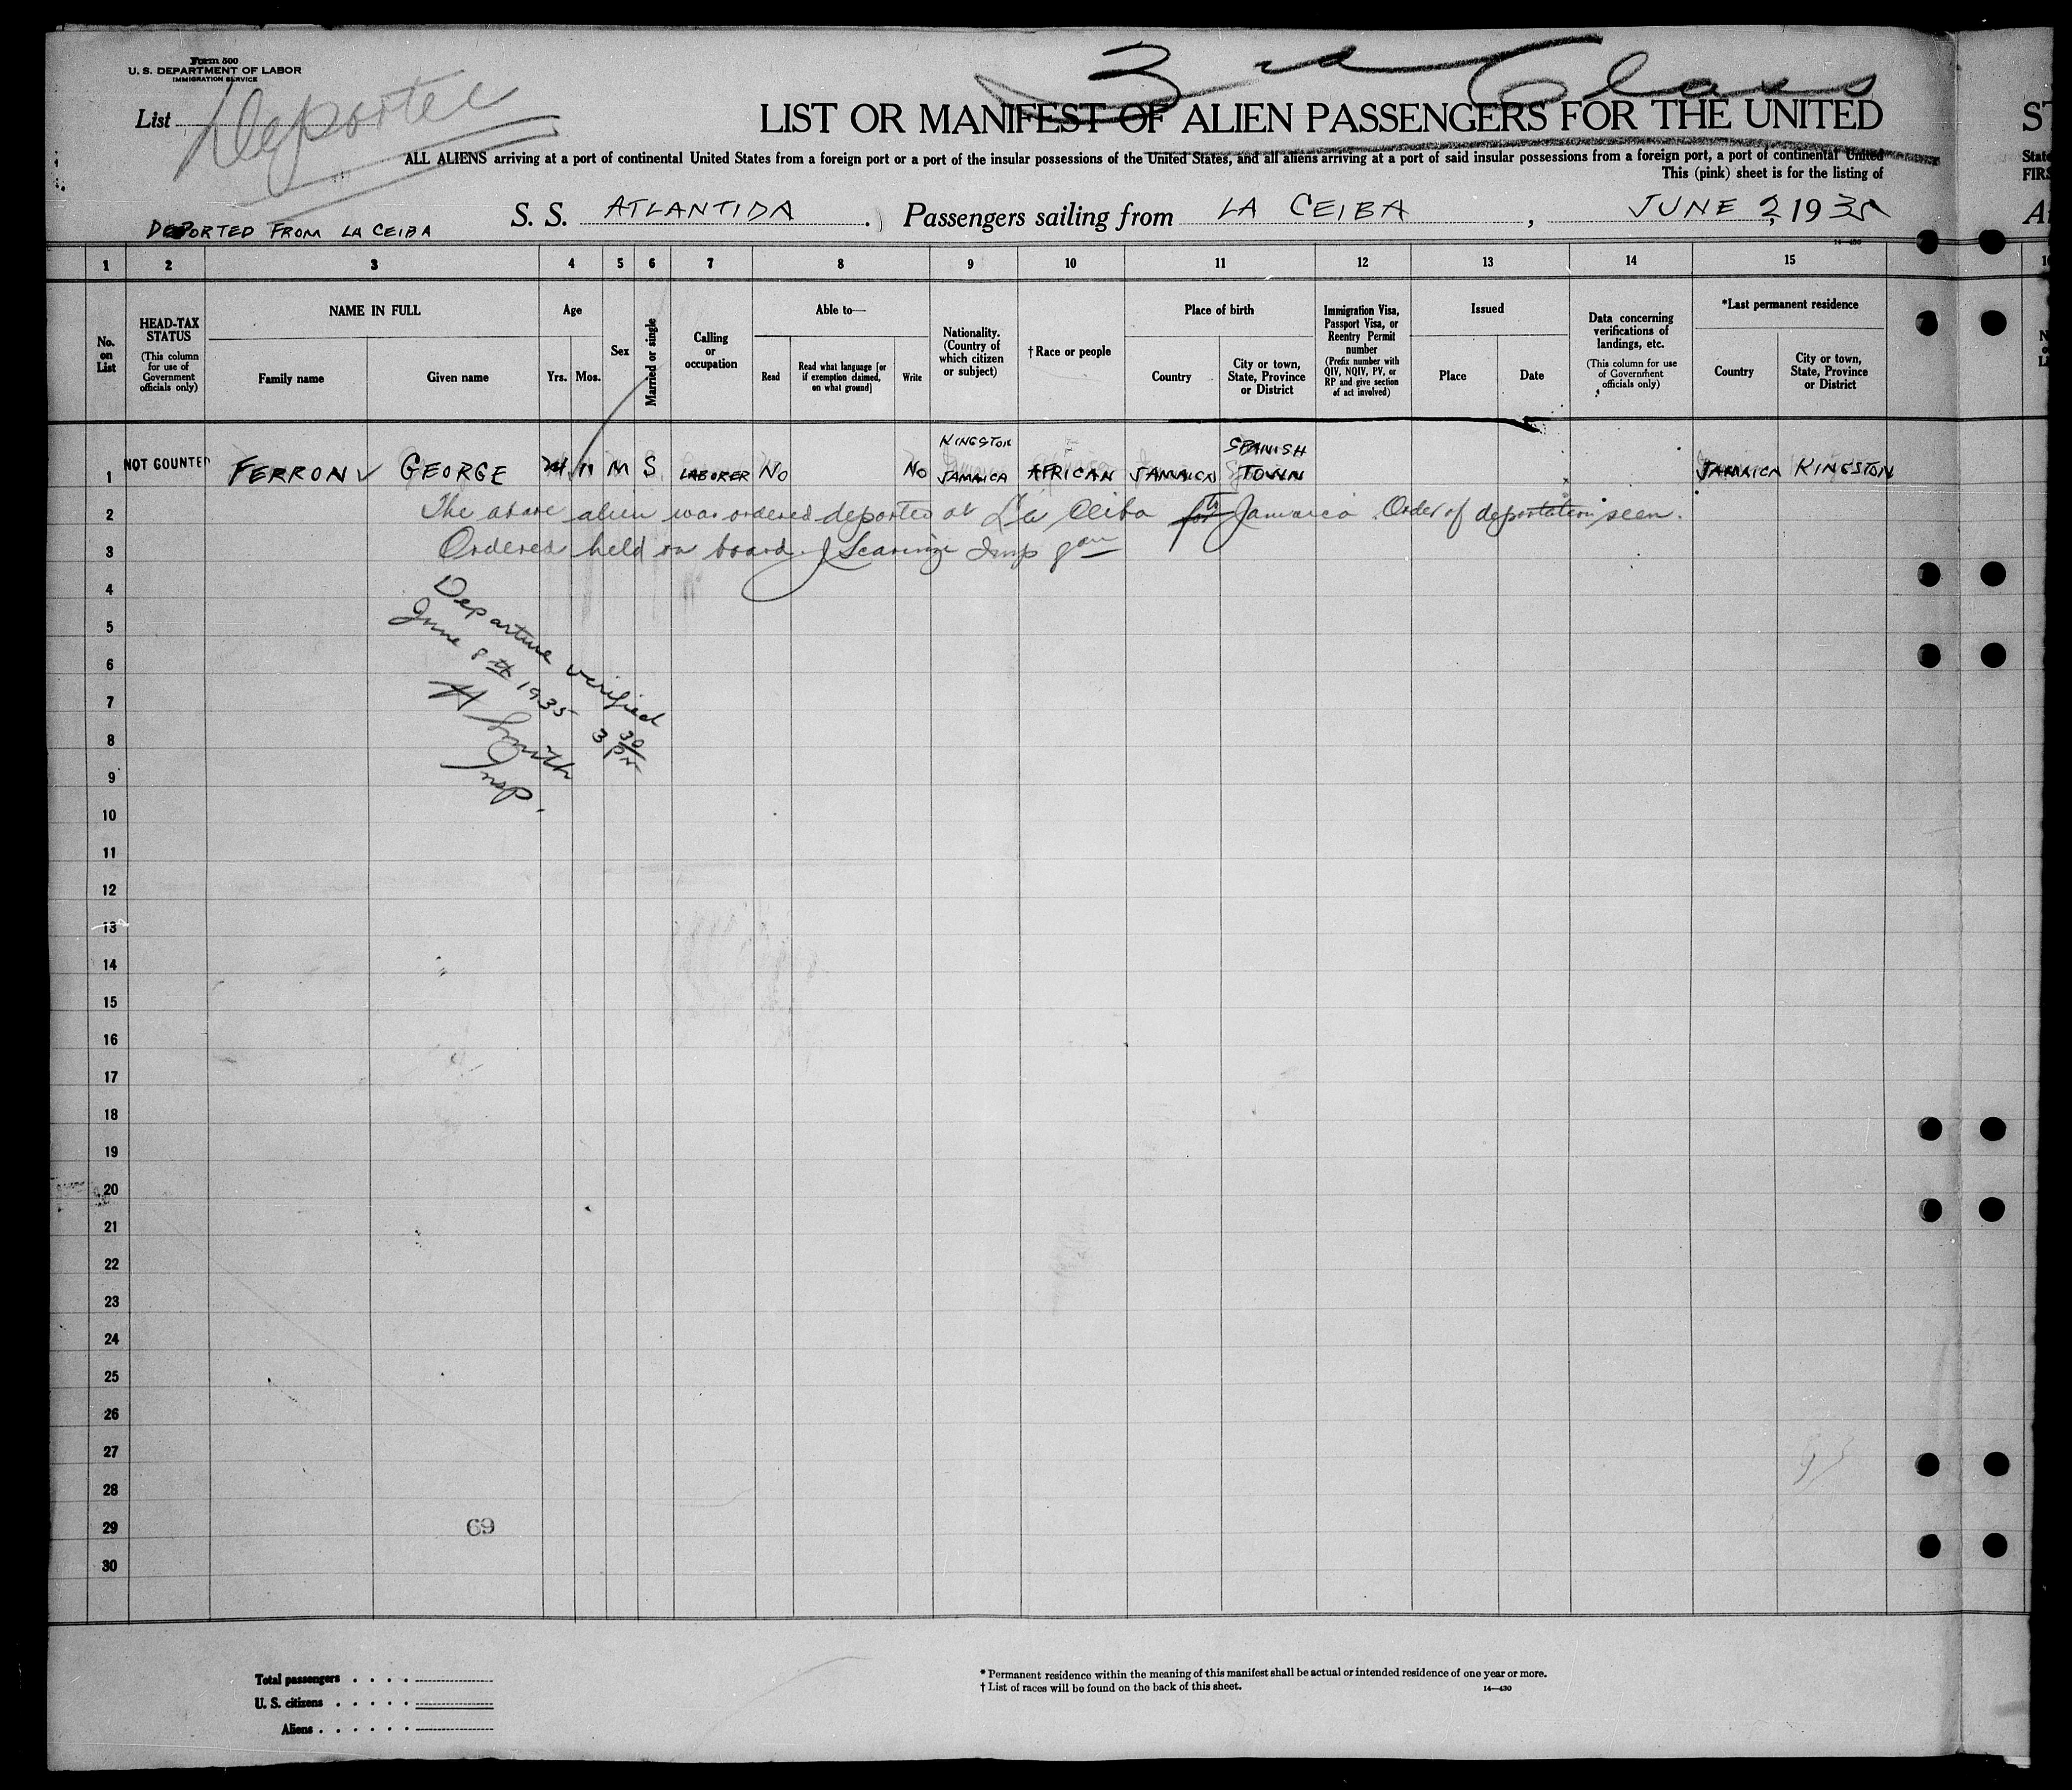 3rd Class
Form 500
U. S. DEPARTMENT OF LABOR
IMMIGRATION SERVICE
List
Deportee
LIST OR MANIFEST OF ALIEN PASSENGERS FOR THE UNITED
ST
ALL ALIENS arriving at a port of continental United States from a foreign port or a port of the insular possessions of the United States, and all aliens arriving at a port of said insular possessions from a foreign port, a port of continental United
State
This (pink) sheet is for the listing of
FIRS
S. S. ATLANTIDA. Passengers sailing from LA CEIBA, JUNE 2, 1935
DEPORTED FROM LA CEIBA
14—430
1 2 3 4 5 6 7 8 9 10 11 12 13 14 15
No. on List
HEAD-TAX STATUS
(This column for use of Government officials only)
NAME IN FULL
Family name
Given name
Age
Yrs. Mos.
Sex
Married or single
Calling or occupation
Able to—
Read
Read what language [or if exemption claimed, on what ground]
Write
Nationality. (Country of which citizen or subject)
†Race or people
Place of birth
Country
City or town, State, Province or District
Immigration Visa, Passport Visa, or Reentry Permit number
(Prefix number with QIV, NQIV, PV, or RP and give section of act involved)
Issued
Place
Date
Data concerning verifications of landings, etc.
(This column for use of Government officials only)
*Last permanent residence
Country
City or town, State, Province or District
1 NOT COUNTED FERRON GEORGE 24 11 M S LABORER NO NO KINGSTON JAMAICA AFRICAN JAMAICA SPANISH TOWN JAMAICA KINGSTON
2 The above alien was ordered deported at La Ceiba to Jamaica. Order of deportation seen.
3 Ordered held on board.
4
5
6
7
8
9
10
11
12
13
14
15
16
17
18
19
20
21
22
23
24
25
26
27
28
29
30
Departure verified
June 8th 1935 3 30 PM
H Smith
Insp.
69
Total passengers
U. S. citizens
Aliens
* Permanent residence within the meaning of this manifest shall be actual or intended residence of one year or more.
† List of races will be found on the back of this sheet.
14—430